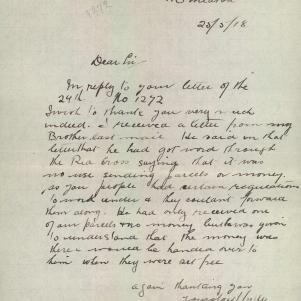 25/5/18
Dear Sir
In reply to your letter of the
24th No 1272
I wish to thank you very much
indeed. I received a letter from my
Brother last
He said in that
letter that he had got word through
the Red Cross saying that it was
no use sending parcels or money
as you people had certain regulations
to work under & they couldant forward
them along. He had only received one
of our parcels & no money but was given
to understand that the money was
there & would be handed over to
them when they were set free
again thanking you